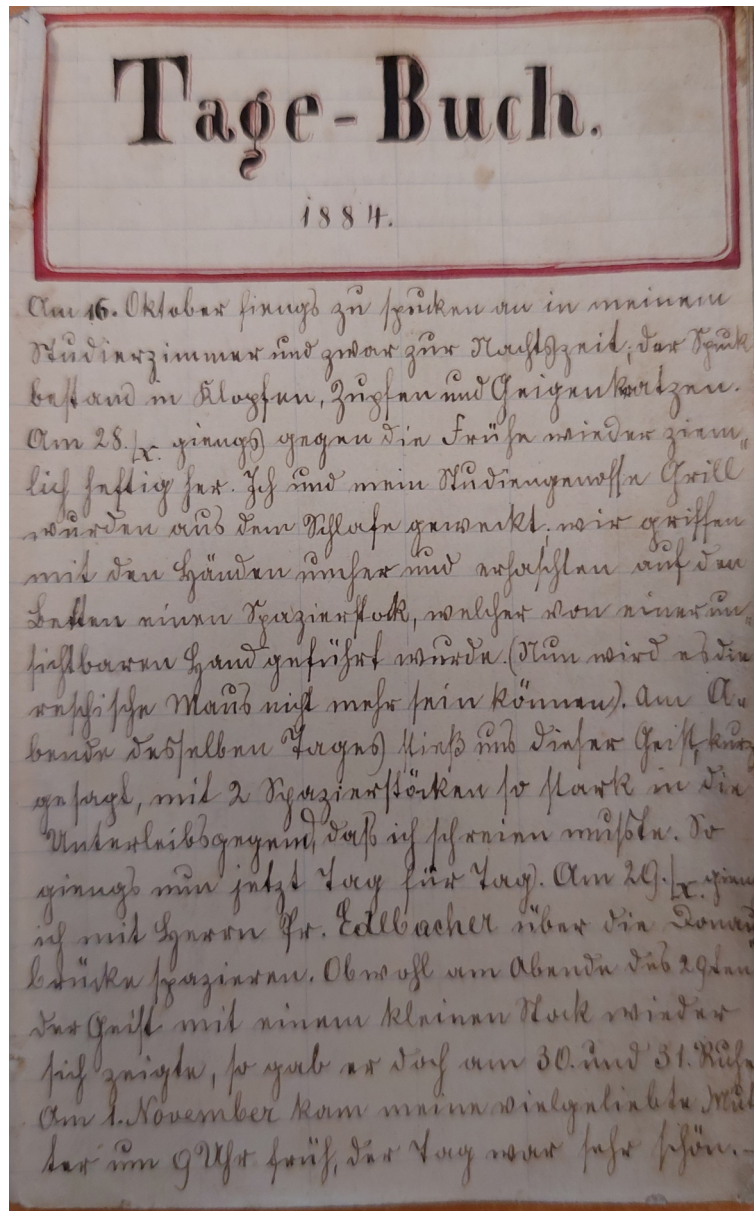 Tage-Buch.
1884.
Am 16. Oktober fiengs zu spucken an in meinem
Studierzimmer und zwar zur Nachtszeit; der Spuk
bestand in Klopfen, Zupfen und Geigenkratzen.
Am 28./X. giengs gegen die Frühe wieder ziem„
lich heftig her. Ich und mein Studiengenosse Grill
wurden aus dem Schlafe geweckt; wir griffen
mit den Händen umher und erhaschten auf den
Betten einen Spazierstock, welcher von einer un„
sichtbaren Hand geführt wurde. (Nun wird es die
Maus nicht mehr sein können). Am A-
bende desselben Tages stieß uns dieser Geist, kurz
gesagt, mit 2 Spazierstöcken so stark in die
Unterleibsgegend, daß ich schreien mußte. So
giengs nun jetzt Tag für Tag. Am 29./X. gieng
ich mit Herrn Pr. Edlbacher über die Donau
brücke spazieren. Obwohl am Abende des 29ten
der Geist mit einem kleinen Stock wieder
sich zeigte, so gab er doch am 30. und 31. Ruhe
Am 1. November kam meine vielgeliebte Mut
ter um 9 Uhr früh, der Tag war sehr schön.-